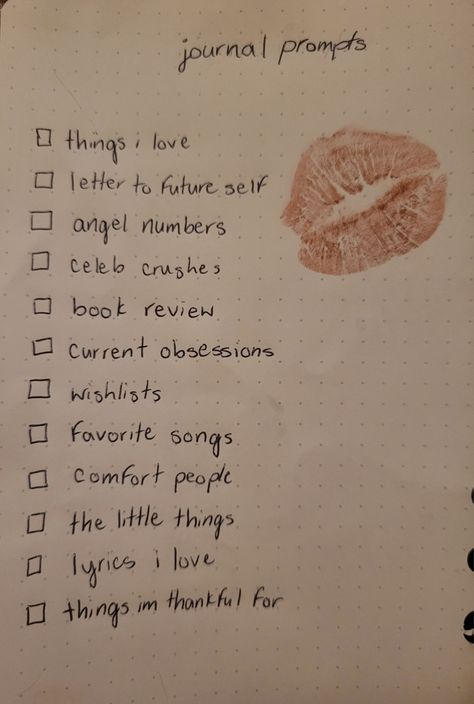 journal prompts
things i love
letter to future self
angel numbers
celeb crushes
book review
current obsessions
wishlists
favorite songs
comfort people
the little things
lyrics i love
things im thankful for